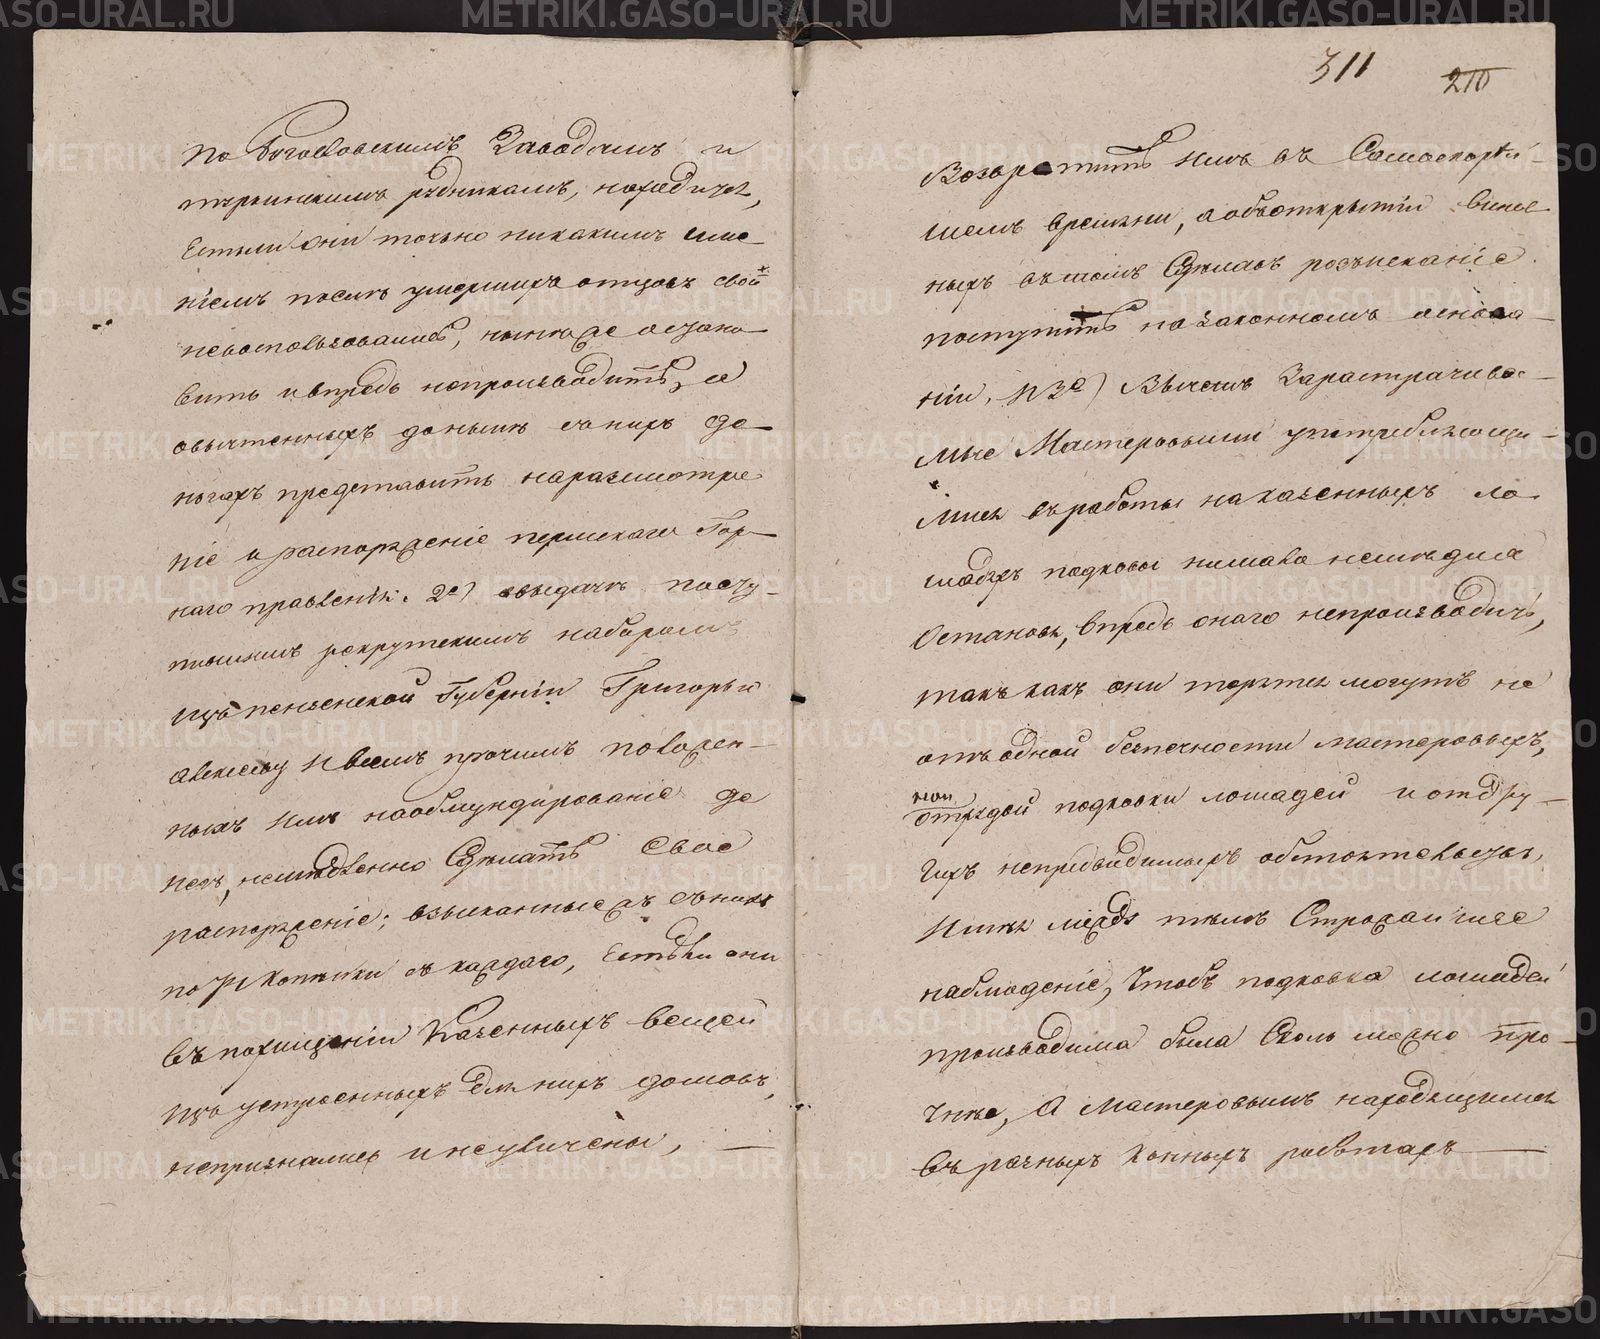 по Богословскимъ Заводамъ и
турьинскимъ рудникамъ, находится,
Естьли они точно никакимъ име-
ніемъ послѣ умершихъ отцовъ свои×
невоспользовались, нынѣ же остано
вить и впредь непроизводить, а
овычтенныхъ донынѣ снихъ де-
ньгахъ представить наразсмотре
ніе и распоряженіе пермскаго Гор-
наго правленія. 2е) овыдачѣ посту-
пившимъ рекрутскимъ наборомъ
изъ пензенской Губерніи Григорью
алексѣеву и всемъ прочимъ поважен-
нымъ имъ наобмундированіе де
негъ, немѣдленно Сдѣлать Свое
распоряженіе; взысканные жъ сънихъ
по копѣйки съ каждаго, Естьли они
въ похищеніи Казенныхъ вещей
изъ устроенныхъ для нихъ домовъ,
непризнались и неуличены, —
311 210
Возвратить имъ въ Самоскорѣй-
шемъ времени, а объоткрытіи винов
ныхъ въ томъ Сдѣлавъ розысканіе
поступить на законномъ основа-
ніи, и 3е) Вычетъ Зарастрачивае-
мые Мастеровыми употребляющи-
мися въ работы на казенныхъ ло-
шадяхъ подковы нимало немѣдля
Остановя, впредь онаго непроизводить,
такъ какъ они терятся могутъ не
отъ одной безпечности мастеровыхъ,
но и
отхудой подковки лошадей и отдру-
гихъ непредвидимыхъ обстоятельствъ,
Имѣя между тѣмъ Строжайшее
наблюденіе, Чтобъ подковка лошадей
производима была Сколь можно про-
чнѣе, А Мастеровымъ находящимся
въ разныхъ Конныхъ работахъ —
METRIKI.GASO-URAL.RU